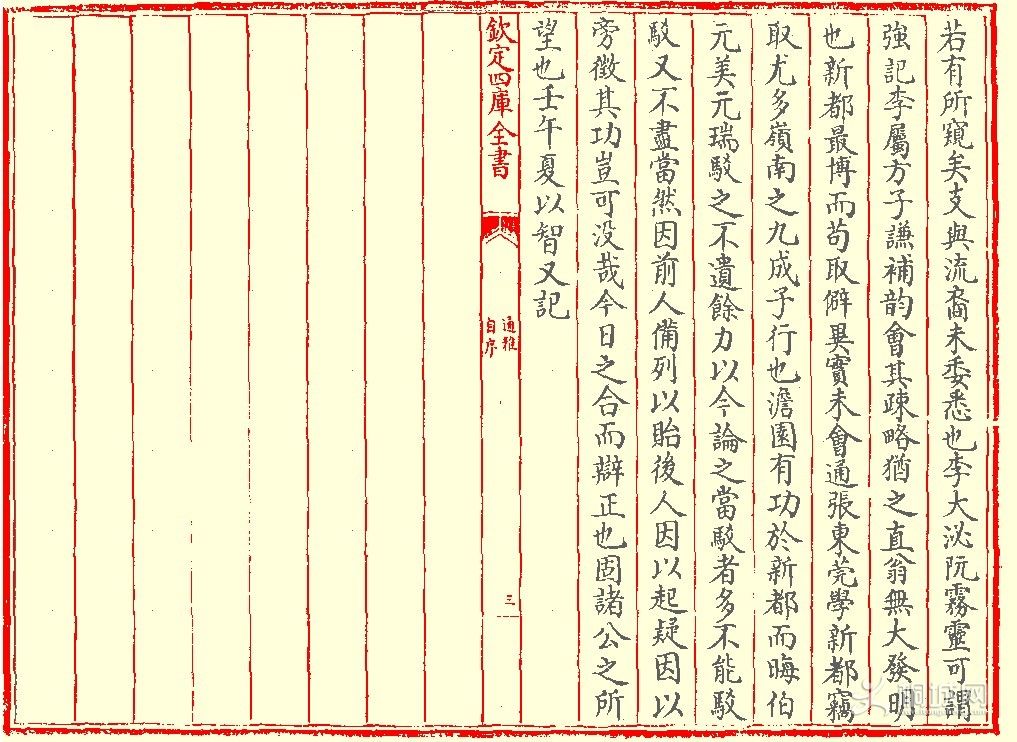 若有所窺矣支與流裔未委悉也李大泌阮霧靈可謂
強記李屬方子謙補韵會其疎略猶之直翁無大發明
也新都最博而苟取僻異實未會通張東莞學新都竊
取尤多嶺南之九成子行也澹園有功於新都而晦伯
元美元瑞駁之不遺餘力以今論之當駁者多不能駁
駁又不盡當然因前人備列以貽後人因以起疑因以
旁徵其功豈可没哉今日之合而辯正也固諸公之所
望也壬午夏以智又記
欽定四庫全書
通雅
自序
三